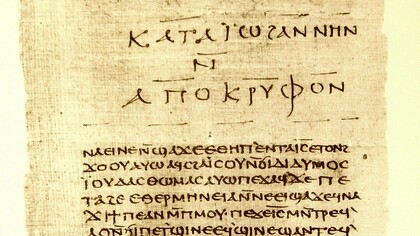 ⲕⲁⲧⲁ ⲓ̈ⲱϩⲁⲛⲛⲏⲛ
ⲛ̄
ⲁⲡⲟⲕⲣⲩⲫⲟⲛ
ⲛⲁⲉⲓⲛⲉⲛ̄ϣⲁϫⲉⲉⲑⲏⲡⲉⲛⲧⲁⲓ̅ⲥ̅ⲉⲧⲟⲛϩ
ϫⲟⲟⲩⲁⲩⲱⲁϥⲥϩⲁⲓ̈ⲥⲟⲩⲛ̄ϭⲓⲇⲓⲇⲩⲙⲟⲥ
ⲓ̈ⲟⲩⲇⲁⲥⲑⲱⲙⲁⲥⲁⲩⲱⲡⲉϫⲁϥϫⲉⲡⲉ
ⲧⲁϩⲉⲉⲑⲉⲣⲙⲏⲛⲉⲓⲁⲛ̄ⲛⲉⲉⲓϣⲁϫⲉϥⲛⲁ
ϫⲓϯⲡⲉⲁⲛⲙ̄ⲡⲙⲟⲩ·ⲡⲉϫⲉⲓ̅ⲥ̅ⲙⲛ̄ⲧⲣⲉϥ